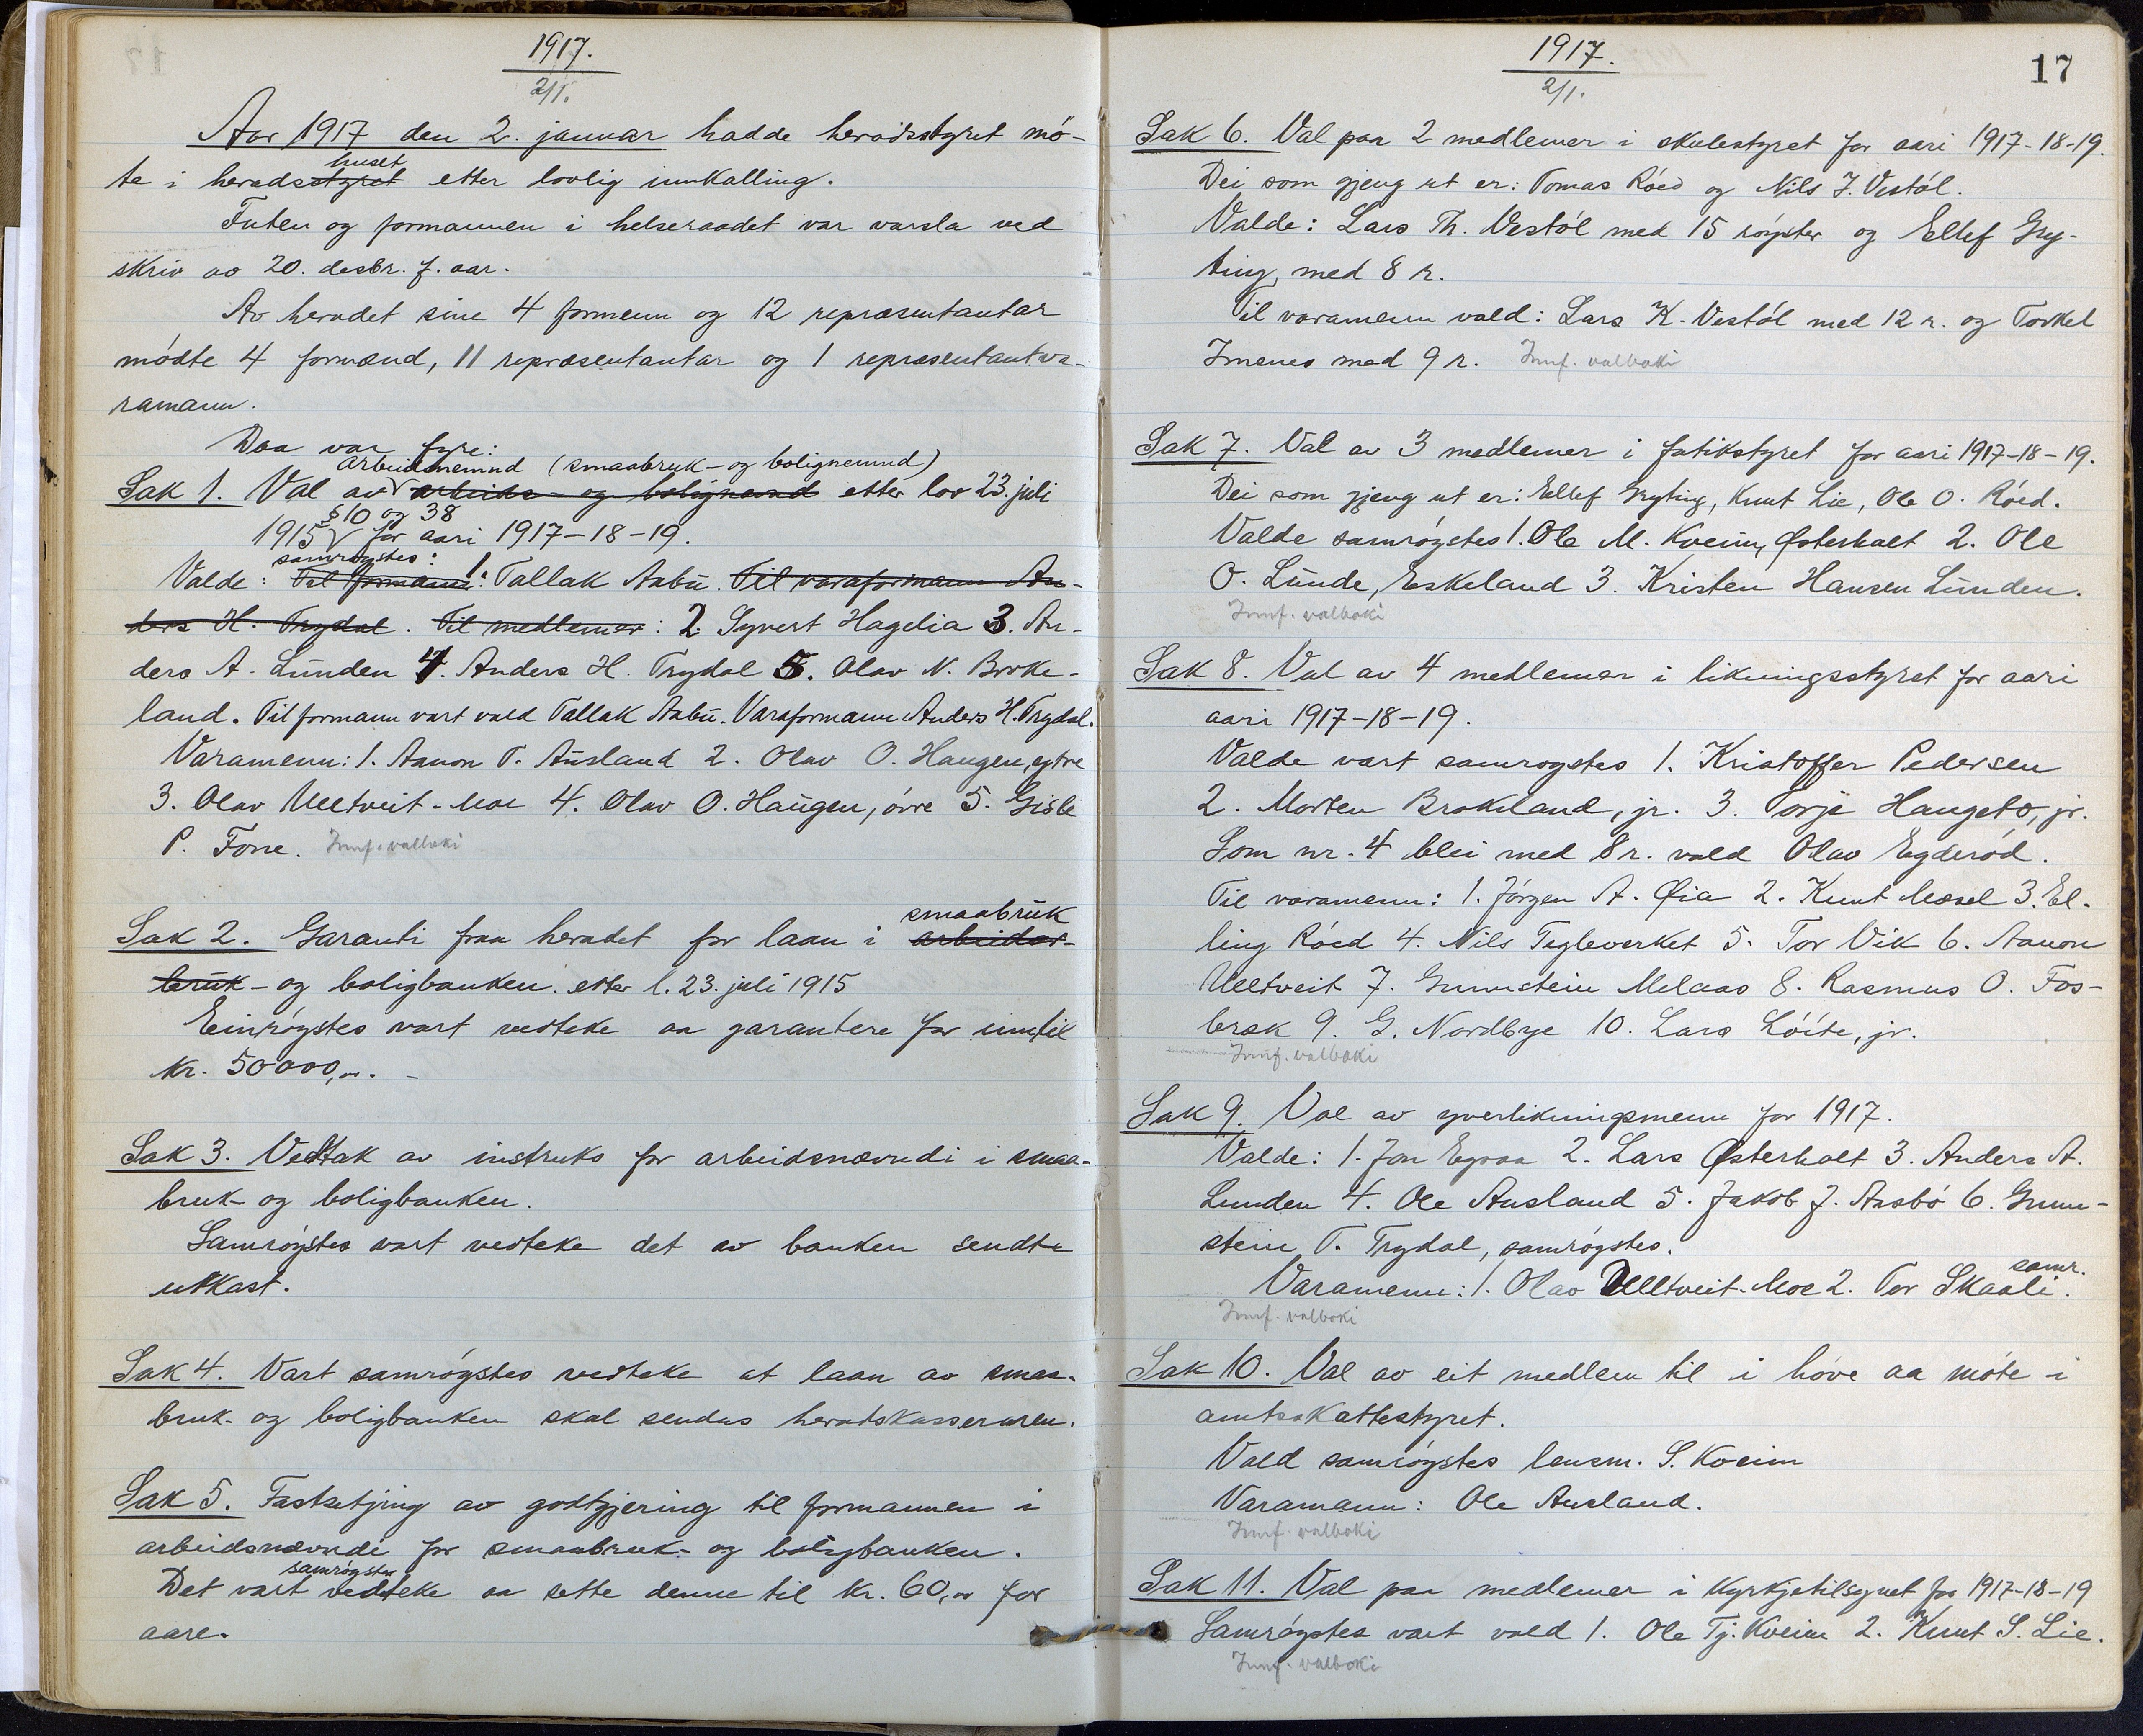 1917.
2/1.
Aar 1917 den 2. januar hadde heradsstyret mö-
huset
te i heradsstyret etter lovlig innkalling.
Futen og formannen i helseraadet var varsla ved
skriv av 20. desbr. f. aar.
Av heradet sine 4 formenn og 12 repræsentantar
módte 4 formænd, 11 repræsentantar og 1 repræsentantva-
ramann.
Daa var fyre:
arbeidsnemnd (smaabruk- og bolignemnd)
Sak 1. Val av arbeids- og bolignemnd etter lov 23. juli
§10 og 38
1915 for aari 1917-18-19.
samrøgstes: 1.
Valde: Til formann: Tallak Aabü. Til varaformann An-
ders H. Trydal. Til medlemer: 2. Syvert Hagelia 3. An-
ders A. Lünden 4. Anders H. Trydal 5. Olav N. Broke-
land. Til formann vart vald Tallak Aabü. Varaformann Anders H. Trydal.
Varamenn: 1. Aanon T. Aüsland 2. Olav O. Haugen, ytre
3. Olav Ulltveit-Moe 4. Olav O. Haügen, óvre 5. Gisle
P. Fone. Innf. valboki
smaabrük
Sak 2. Garanti fraa heradet for laan i arbeidar-
brük- og boligbanken. etter l. 23. juli 1915
Einrógstes vart vedteke aa garantere for inntil
kr. 50000,-. -
Sak 3. Vedtak av instruks for arbeidsnævndi i smaa-
bruk- og boligbanken.
Samrógstes vart vedteke det av banken sendte
utkast.
Sak 4. Vart samrógstes vedteke at laan av smaa-
bruk- og boligbanken skal sendas heradskasseraren.
Sak 5. Fastsetjing av godtgjering til formannen i
arbeidsnævndi for smaabruk- og boligbanken.
samrógstes
Det vart vedteke aa sette denne til kr. 60,- for
aare.
1917.
2/1.
17
Sak 6. Val paa 2 medlemer i skulestyret for aari 1917-18-19.
Dei som gjeng ut er: Tomas Róed og Nils J. Vestól.
Valde: Lars Th. Vestól med 15 róyster og Ellef Gry-
ting, med 8 r.
Til varamenn vald: Lars K. Vestól med 12 r. og Torkel
Imenes med 9 r. Innf. valboki
Sak 7. Val av 3 medlemer i fatikstyret for aari 1917-18-19.
Dei som gjeng ut er: Ellef Gryting, Knut Lie, Ole O. Róed.
Valde samrógstes 1. Ole M. Kveim, Østerhalt 2. Ole
O. Lünde, Eskeland 3. Kristen Hansen Lünden.
Innf. valboki
Sak 8. Val av 4 medlemer i likningsstyret for aari
aari 1917-18-19.
Valde vart samrogstes 1. Kristoffer Pedersen
2. Morten Brokeland, jr. 3. Torje Haugeto, jr.
Som nr. 4 blei med 8 r. vald Olav Egderód.
Til varamenn: 1. Jórgen A. Øia 2. Knut Mæsel 3. El-
ling Róed 4. Nils Tegleverket 5. Tor Vik 6. Aanon
Ulltveit 7. Gunnstein Melaas 8. Rasmus O. Fos-
bræk 9. G. Nordbye 10. Lars Lóite, jr.
Innf. valboki
Sak 9. Val av yverlikningsmenn for 1917.
Valde: 1. Jon Egraa 2. Lars Østerhalt 3. Anders A.
Lunden 4. Ole Ausland 5. Jakob J. Aasbó 6. Gunn-
stein T. Trydal, samrógstes.
samr.
Varamenn: 1. Olav Ulltveit-Moe 2. Tor Skaali.
Innf. valboki
Sak 10. Val av eit medlem til i hóve aa móte i
amtsskattestyret.
Vald samrógstes lensm. S. Kveim
Varamann: Ole Ausland.
Innf. valboki
Sak 11. Val paa medlemer i Kyrkjetilsynet for 1917-18-19
Samrógstes vart vald 1. Ole Tj. Kveim 2. Knut S. Lie.
Innf. valboki